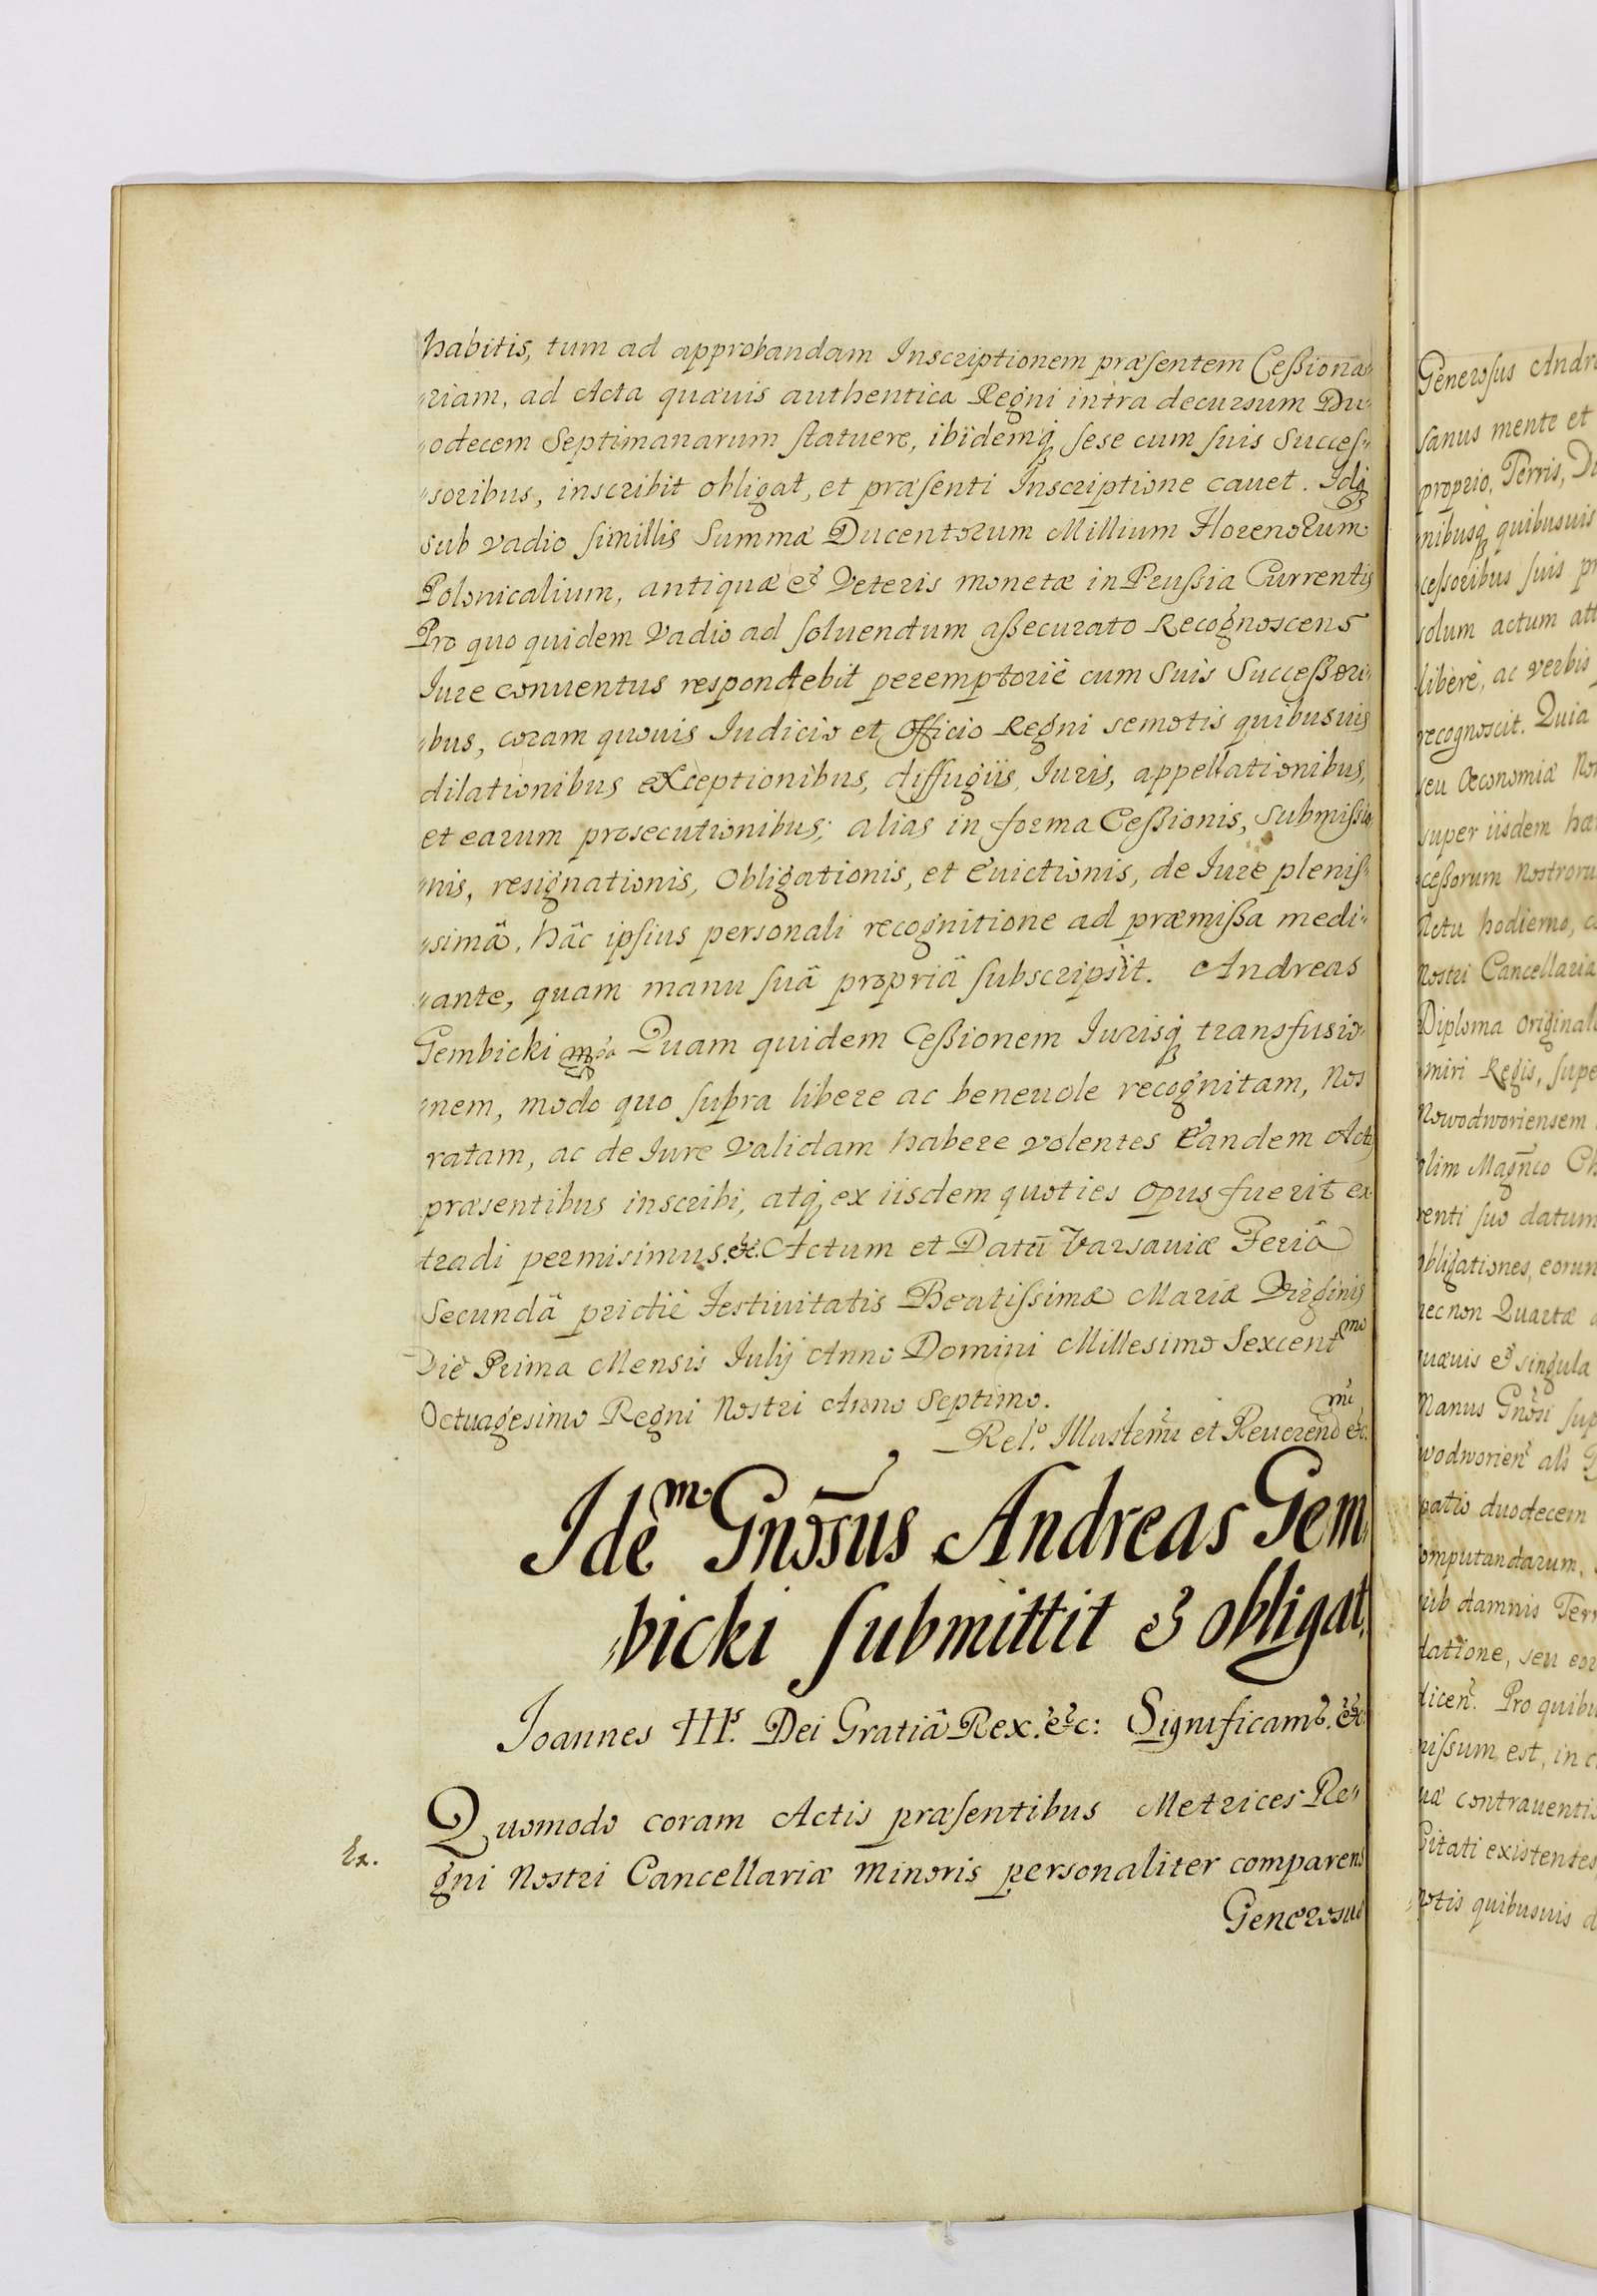 habitis, tum ad approbandam Inscriptionem præsentem Cessiona⸗
⸗riam, ad Acta quævis authentica Regni intra decursum Du⸗
⸗odecem Septimanarum statuere, ibidemq; sese cum suis Succes⸗
⸗soribus, inscribit obligat, et præsenti Inscriptione cavet. Idq;
sub vadio simillis Summæ Ducentorum Millium Florenorum
Polonicalium, antiquæ et Veteris monetæ in Prussia Currentis
Pro quo quidem Vadio ad soluendum assecurato Recognoscens
Iure conuentus respondebit peremptoriè cum Suis Successori⸗
⸗bus, coram quouis Iudicio et Officio Regni semotis quibusuis
dilationibus exceptionibus, diffugiis Iuris, appellationibus,
et earum prosecutionibus; alias in forma Cessionis, Submissio⸗
⸗nis, resignationis, Obligationis, et Euictionis, de Iure plenis⸗
⸗simâ, hâc ipsius personali recognitione ad præmissa medi⸗
⸗ante, quam manu suâ propriâ subscripsit. Andreas
Gembicki mpa Quam quidem Cessionem Iurisq; transfusio⸗
⸗nem, modo quo supra libere ac beneuole recognitam, Nos
ratam, ac de Iure Validam habere volentes Eandem Actis
præsentibus inscribi, atq; ex iisdem quoties opus fuerit ex⸗
tradi permisimus. etc. Actum et Datū Varsauiæ Feriâ
Secundâ pridiè Festiuitatis Beatissimæ Mariæ Virginis
Die Prima Mensis Iulij Anno Domini Millesimo Sexcentmo
Octuagesimo Regni Nostri Anno Septimo.
Rel.o Illustrmi et Reuerendmi etc.
Idēm Gnōsus Andreas Gem⸗
⸗bicki submittit et obligat.
Ioannes IIIs. Dei Gratiâ Rex. etc: Significams. etc.
Quomodo coram Actis præsentibus Metrices Re⸗
Ex.
gni Nostri Cancellariæ Minoris personaliter comparens
Generosus
Generosus Andre
sanus mente et
proprio, Terris, Di
nibusq; quibusuis
cessoribus suis pr
solum actum att
liberè, ac verbis
recognoscit. Quia
seu Œconomiæ No
super iisdem hæ
cessorum Nostroru
Actu hodierno, c
Nostri Cancellariæ
Diploma Original
miri Regis, supe
Nowodworiensem
olim Magn̄co Ch
renti suo datum
obligationes, eorun
necnon Quartæ
quæuis et singula
Manus Gnosi sup
wodworien als
spatio duodecem
computandarum,
sub damnis Terr
datione, seu eor
dicen. Pro quibu
missum est, in c
uæ contrauentio
Citati existentes
motis quibusuis d